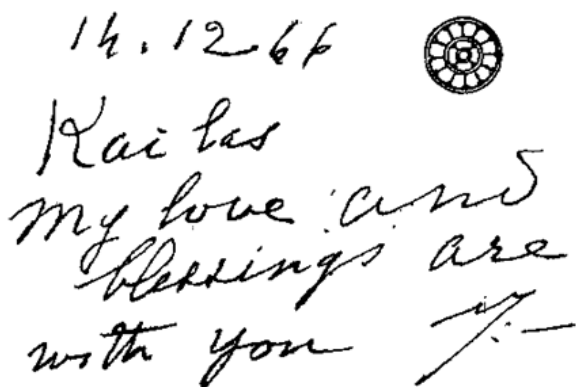 14.12.66
Kailas
My love and
blessings are
with you